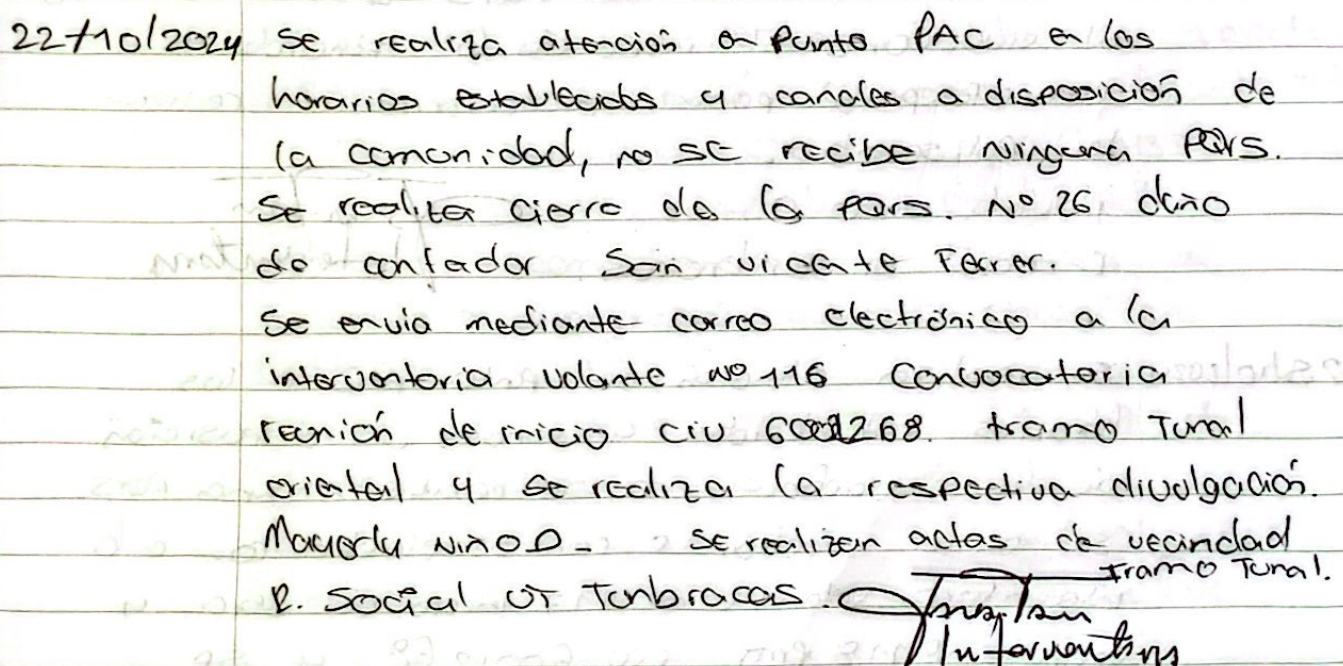 22/10/2024 Se realiza atención en Punto PAC en los
horarios establecidos y canales a disposición de
la comunidad, no se recibe ninguna PQRS.
Se realiza cierre de la PQRS. Nº 26 daño
de contador San Vicente Ferrer.
Se envia mediante correo electrónico a la
interventoria volante Nº 116 Convocatoria
reunión de inicio CIV tramo Tunal
oriental y se realiza la respectiva divulgación.
Mayerly Niño D- Se realizan actas de vecindad
tramo Tunal.
R. Social UT Tunbracas.
Interventoria